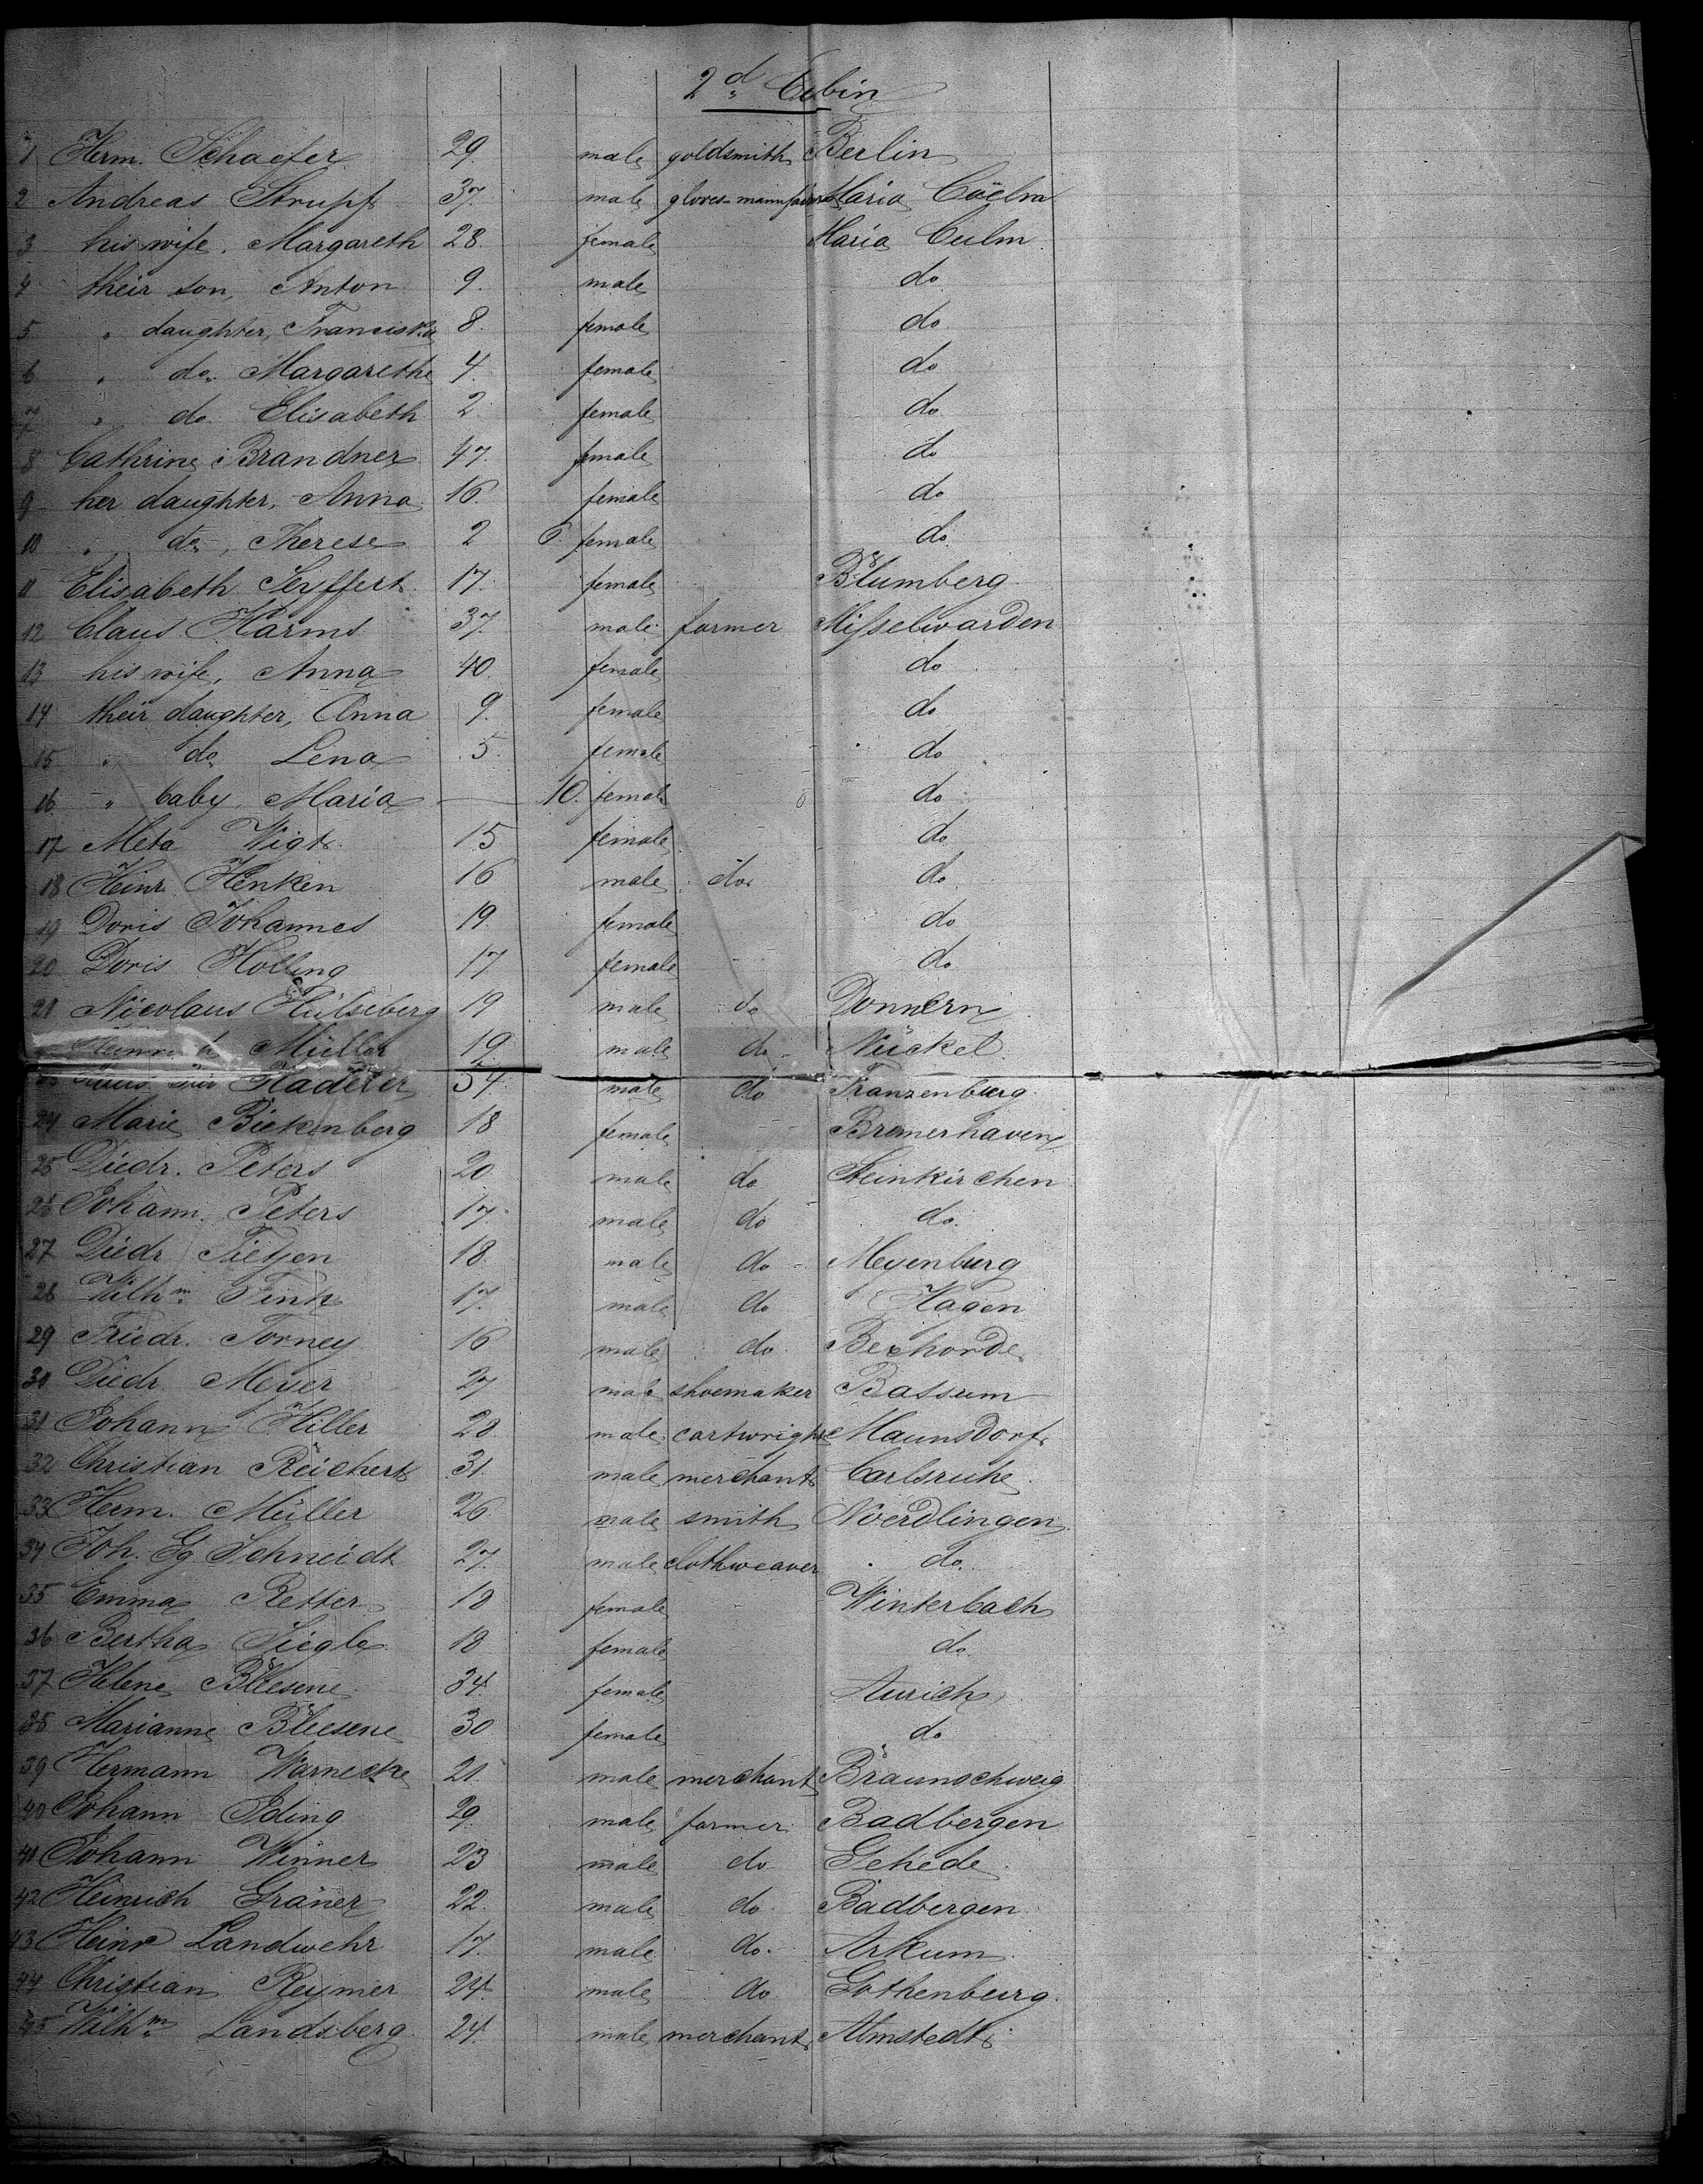 2d Cabin
1 Herm. Schaefer 29. male goldsmith Berlin
2 Andreas Strupf 37. male gloves manufacturer Maria Cuelm
3 his wife, Margareth 28. female Maria Culm.
4 their son, Anton 9. male do.
5 " daughter, Franciska 8. female do.
6 " do. Margarethe 4. female do
7 " do. Elisabeth 2. female do
8 Cathrine Brandner 47. female do
9 her daughter, Anna 16. female do
10 " do, Therese 2 6. female do.
11 Elisabeth Seyffert 17. female Blumberg
12 Claus Harms 37. male farmer Misselwarden
13 his wife, Anna 40. female do
14 their daughter, Anna 9. female do
15 " do Lena 5. female do
16 " baby, Maria — 10. female do
17 Meta Vigt 15 female do
18 Heinr. Henken 16 male do. do
19 Doris Johannes 19. female do
20 Doris Holling 17 female do
21 Nicolaus Hülseberg 19 male do Donnern
Müller 19. male do Nückel
Haderer 54. male do Franzenburg.
24 Marie Bickenberg 18 female Bremerhaven
25 Diedr. Peters 20. male do Steinkirchen
26 Johann. Peters 17. male do do.
27 Diedr. Tietjen 18. male do Meyenburg
28 Wilhm. Fink 17. male do Hagen
29 Friedr. Torney 16 male do Bexhorde
30 Diedr. Meyer 27 male shoemaker Bassum
31 Johann Hiller 28. male cartwright Maunsdorf
32 Christian Reichert 31. male merchant Carlsruhe
33 Herm. Müller 26. male smith Noerdlingen
34 Joh. Gg Schneidt 27. male clothweaver do.
35 Emma Retter 18 female Winterbach
36 Bertha Siegle 18 female do.
37 Helene Bluesene 34. female Aurich
38 Marianne Bluesene 30 female do
39 Hermann Warnecke 21. male merchant Braunschweig
40 Johann Iding 29. male farmer Badbergen
41 Johann Winner 23 male do Gehede
42 Heinrich Gräner 22. male do. Badbergen
43 Heinr Landwehr 17. male do. Arkum
44 Christian Reymer 24. male do Gothenburg.
45 Wilhm. Landsberg 24. male merchant Almstedt